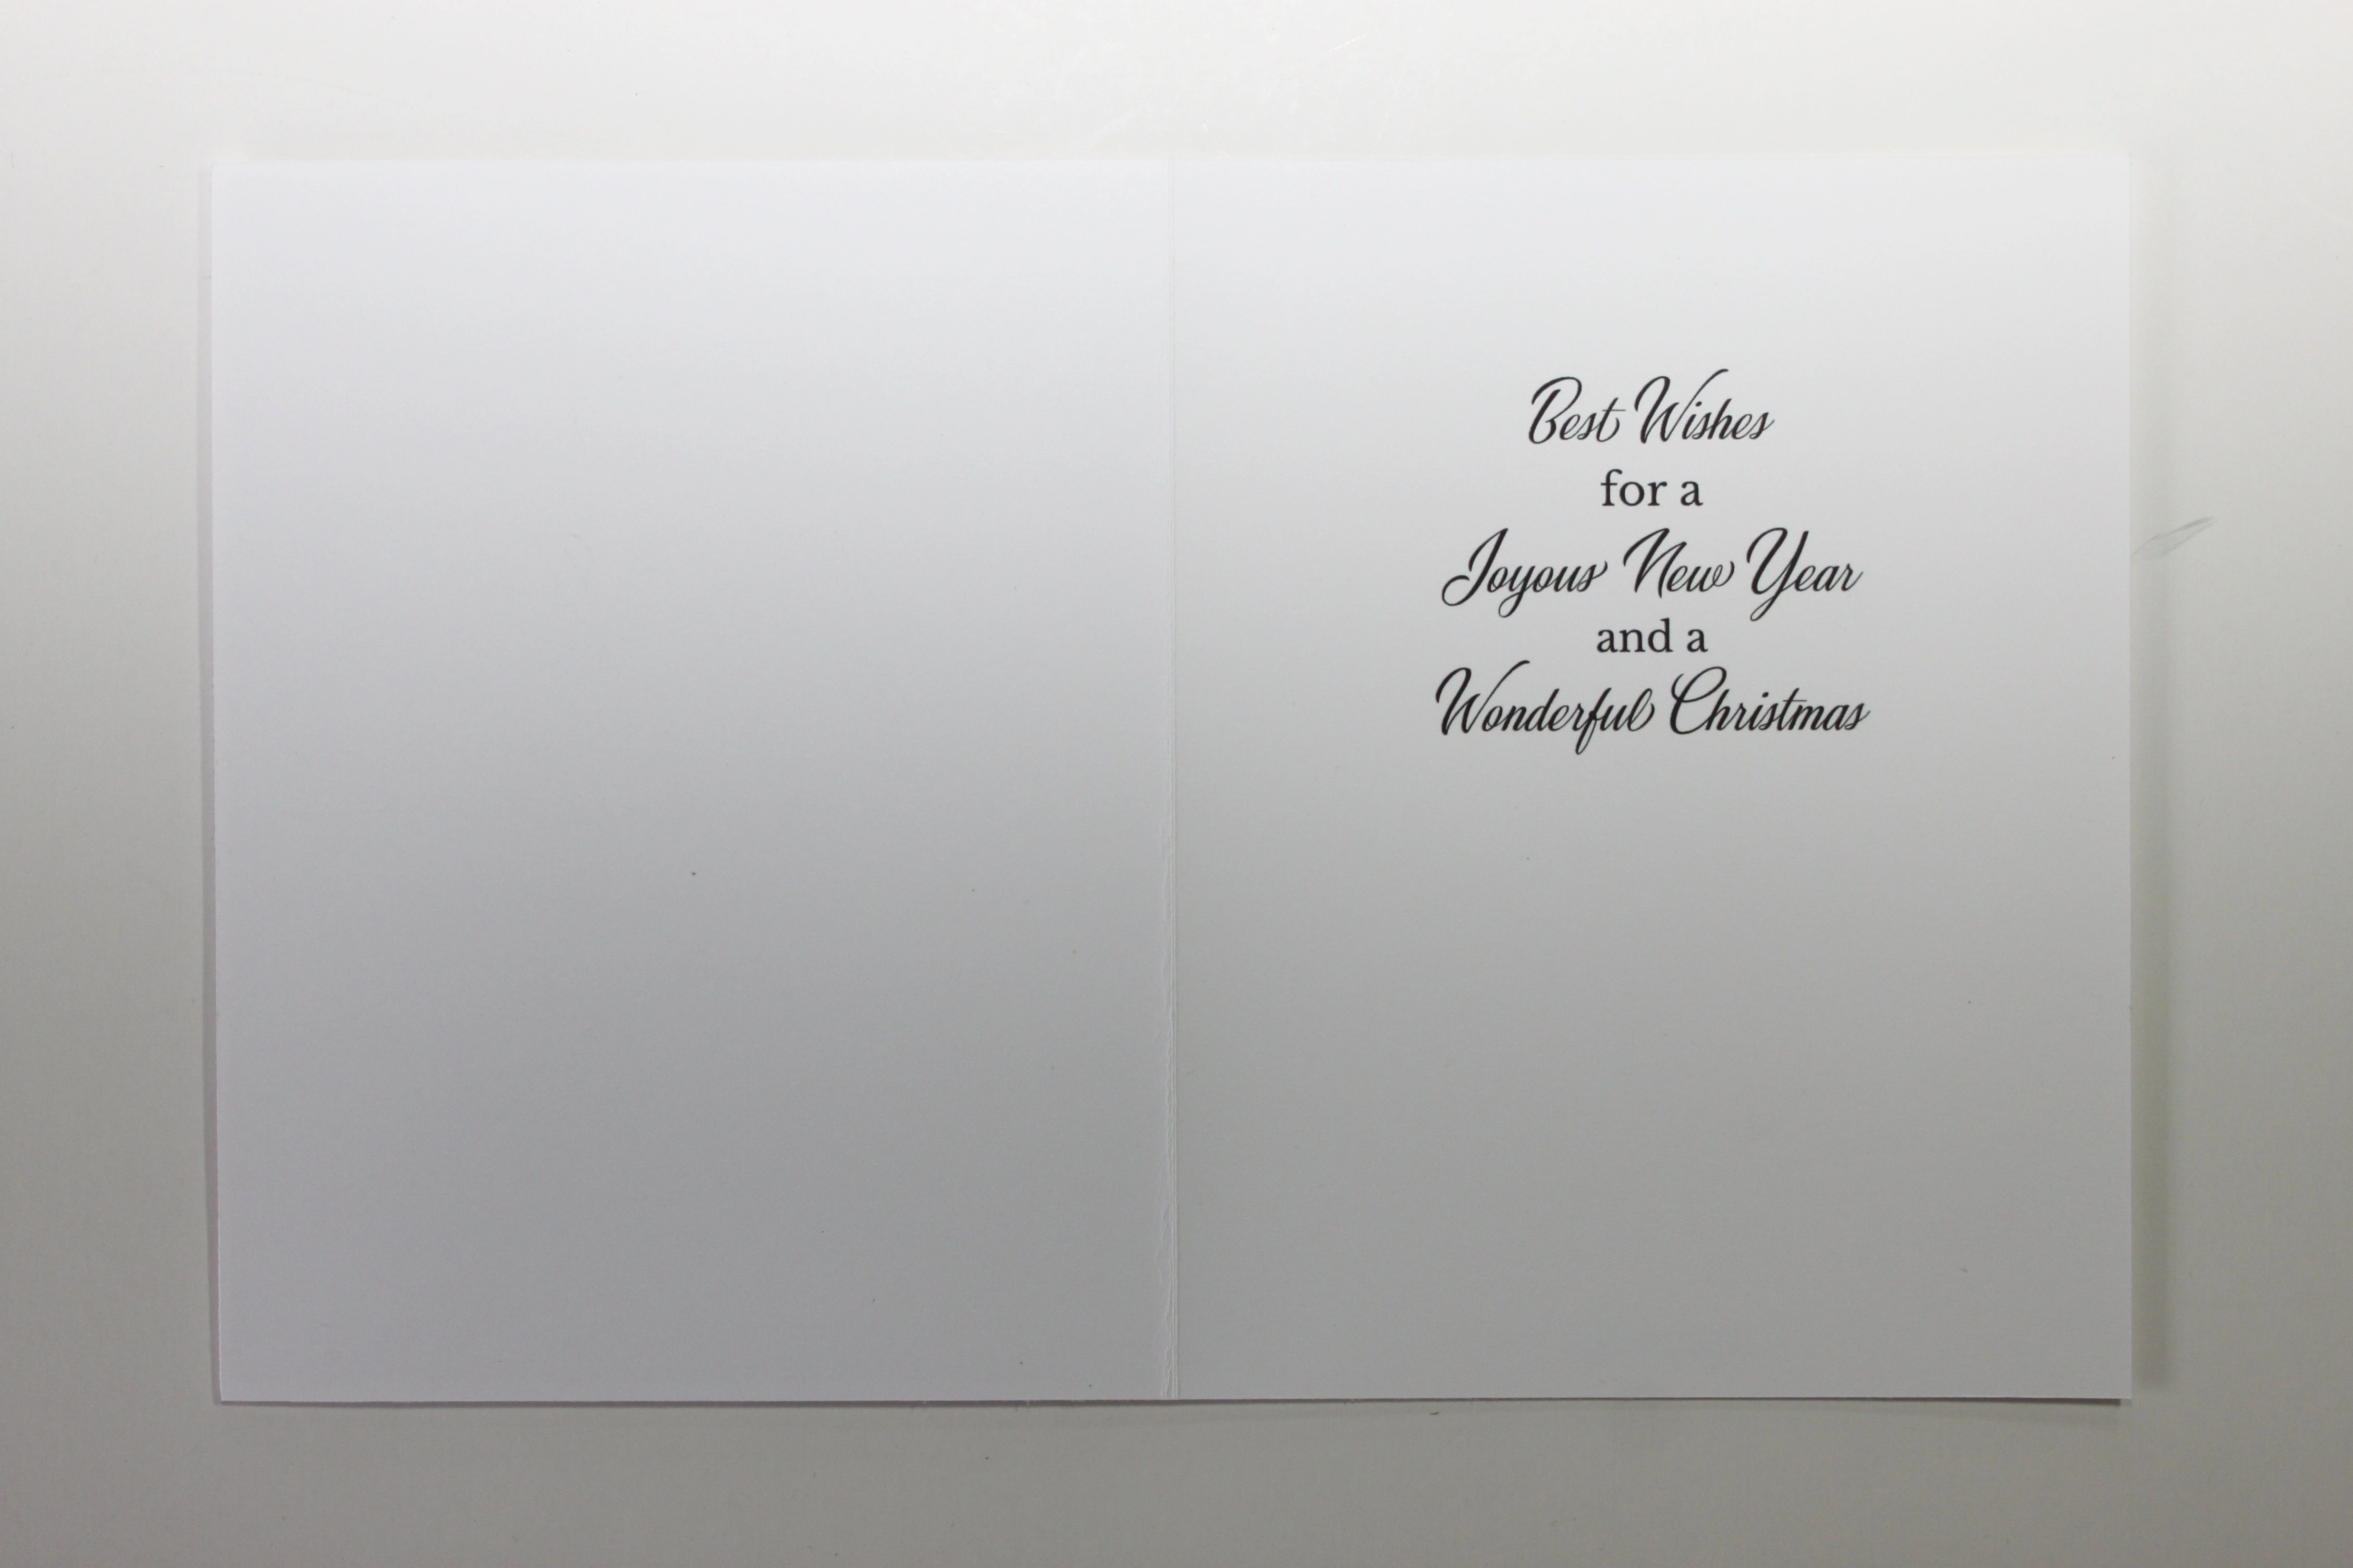 Best Wishes
for a
Joyous New Year
and a
Wonderful Christmas